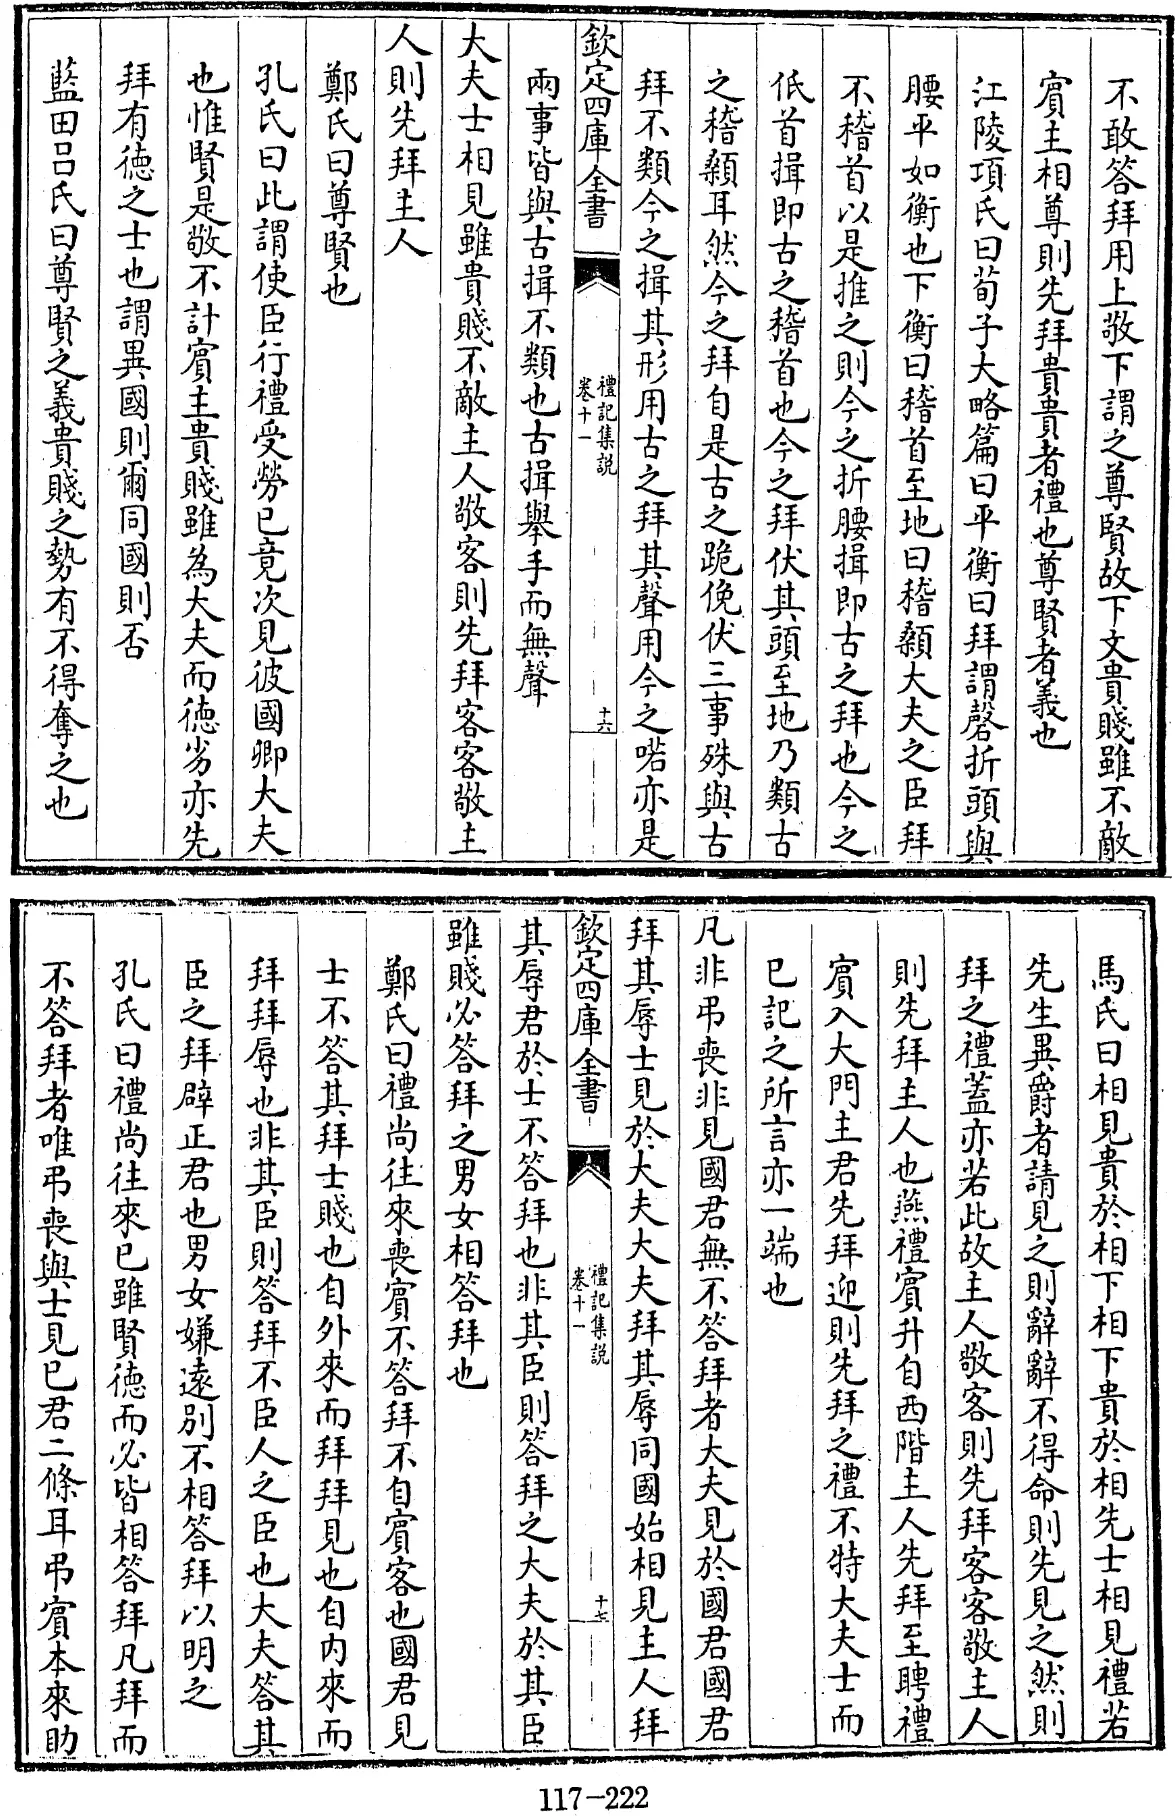 不敢答拜用上敬下謂之尊賢故下文貴賤雖不敵
賓主相尊則先拜貴貴者禮也尊賢者義也
江陵項氏曰荀子大略篇曰平衡曰拜謂磬折頭與
腰平如衡也下衡曰稽首至地曰稽顙大夫之臣拜
不稽首以是推之則今之折腰揖即古之拜也今之
低首揖即古之稽首也今之拜伏其頭至地乃類古
之稽顙耳然今之拜自是古之跪俛伏三事殊與古
拜不類今之揖其形用古之拜其聲用今之喏亦是
欽定四庫全書
禮記集説
卷十一
十六
兩事皆與古揖不類也古揖舉手而無聲
大夫士相見雖貴賤不敵主人敬客則先拜客客敬主
人則先拜主人
鄭氏曰尊賢也
孔氏曰此謂使臣行禮受勞已竟次見彼國卿大夫
也惟賢是敬不計賓主貴賤雖為大夫而徳劣亦先
拜有徳之士也謂異國則爾同國則否
藍田呂氏曰尊賢之義貴賤之勢有不得奪之也
馬氏曰相見貴於相下相下貴於相先士相見禮若
先生異爵者請見之則辭辭不得命則先見之然則
拜之禮蓋亦若此故主人敬客則先拜客客敬主人
則先拜主人也燕禮賓升自西階主人先拜至聘禮
賓入大門主君先拜迎則先拜之禮不特大夫士而
已記之所言亦一端也
凡非弔喪非見國君無不答拜者大夫見於國君國君
拜其辱士見於大夫大夫拜其辱同國始相見主人拜
欽定四庫全書
禮記集説
卷十一
十七
其辱君於士不答拜也非其臣則答拜之大夫於其臣
雖賤必答拜之男女相答拜也
鄭氏曰禮尚往來喪賓不答拜不自賓客也國君見
士不答其拜士賤也自外來而拜拜見也自内來而
拜拜辱也非其臣則答拜不臣人之臣也大夫答其
臣之拜辟正君也男女嫌遠别不相答拜以明之
孔氏曰禮尚往來已雖賢徳而必皆相答拜凡拜而
不答拜者唯弔喪與士見已君二條耳弔賓本來助
117-222